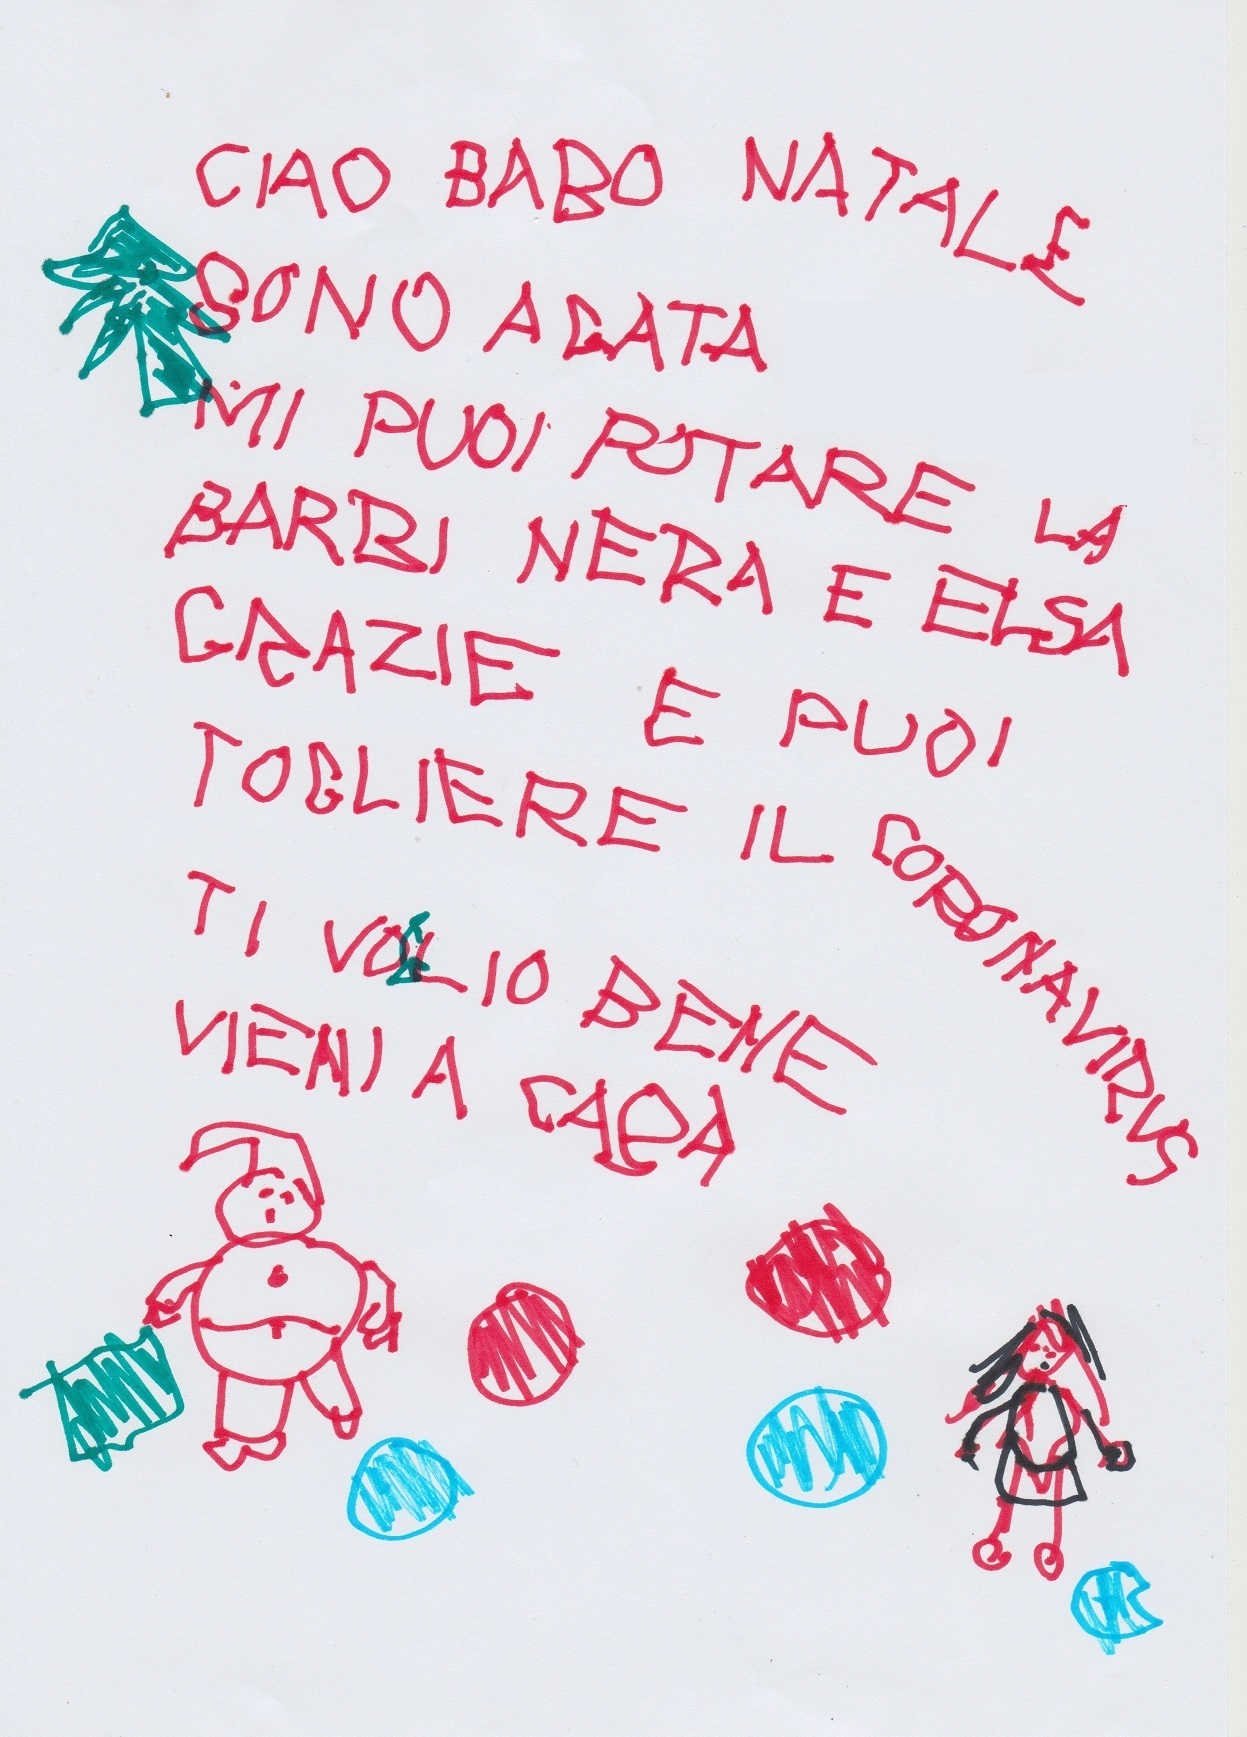 CIAO BABO NATALE
SONO AGATA
MI PUOI POTARE LA
BARBI NERA E ELSA
GRAZIE E PUOI
TOGLIERE IL CORONAVIRUS
TI VOLIO BENE
VIENI A CASA